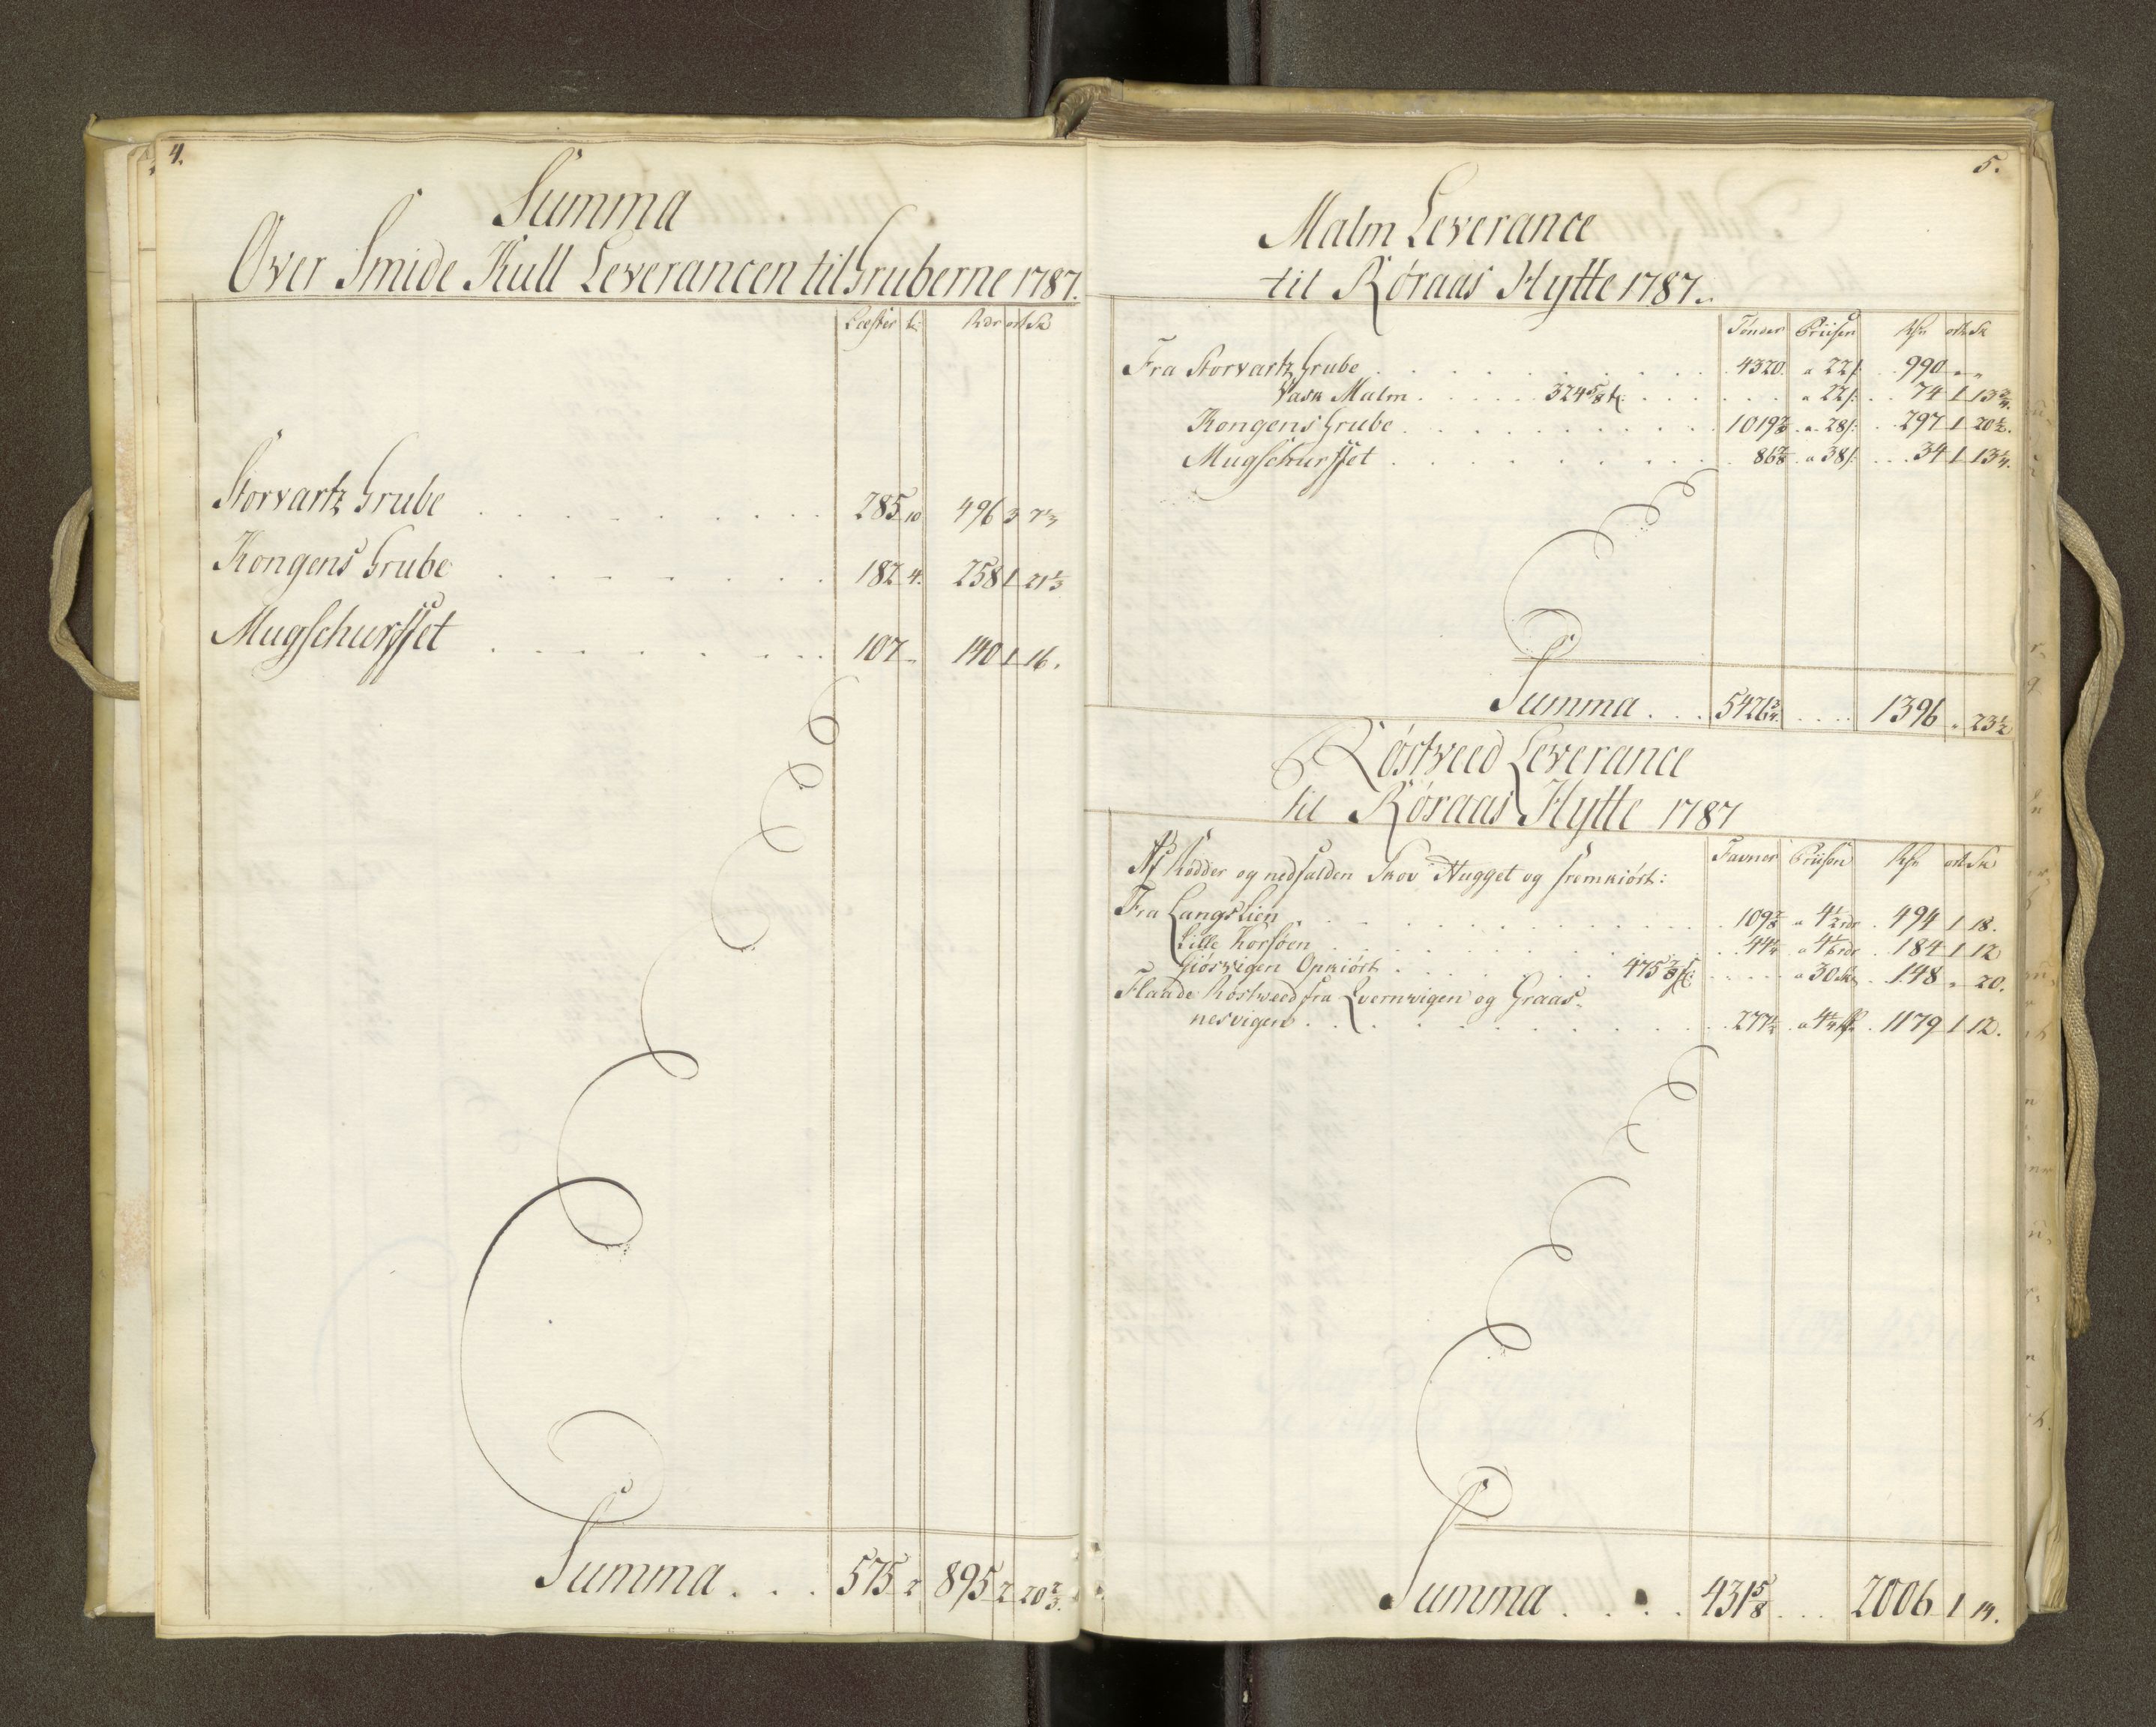 4.
Summa
Over Smide Kull Leverancen til Gruberne 1787.
Læster t: Rdr ort Sk
Storvartz Grube 285 10 496 3 7 1/3
Kongens Grube 182 4. 258 1 21 1/3
Mugschurffet 107 „ 140 1 16.
Summa . . . 575 2 895 2 20 2/3.
5.
Malm Leverance
til Röraas Hytte 1787.
Tönder Priisen Rdr ort Sk
Fra Storvartz Grube 4320. a 22 s. 990 „ „
Vask Malm 324 5/8 t: a 22 s: 74 1 13 3/4.
Kongens Grube 1019 2/8 a 28 s: 297 1 20 1/2.
Mugschurffet 86 7/8 a 38 s: 34 1 13 1/4.
Summa . . . 5426 3/4. 1396 „ 23 1/2
Röstweed Leverance
til Röraas Hytte 1787
Favner Priisen Rdr ort Sk
Af Rödder og nedfalden Skov Hugget og fremkiört:
Fra Langs Lien 109 7/8 a 4 1/2 rdr 494 1 18.
Lille Korsöen 44 1/4 a 4 1/6 rdr 184 1 12
Giösvigen Opkiört 475 2/8 a 30 sk 148 „ 20.
Flaade Röstweed fra Qvernvigen og Graas-
nesvigen 277 1/2 a 4 1/4 1179 1 12.
Summa . . . 431 5/8 . . . 2006 1 14.